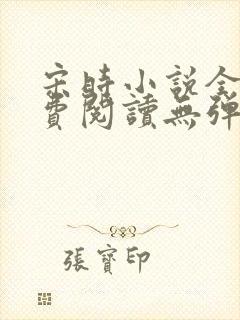 宋时小说全
费阅读无弹
張寶印